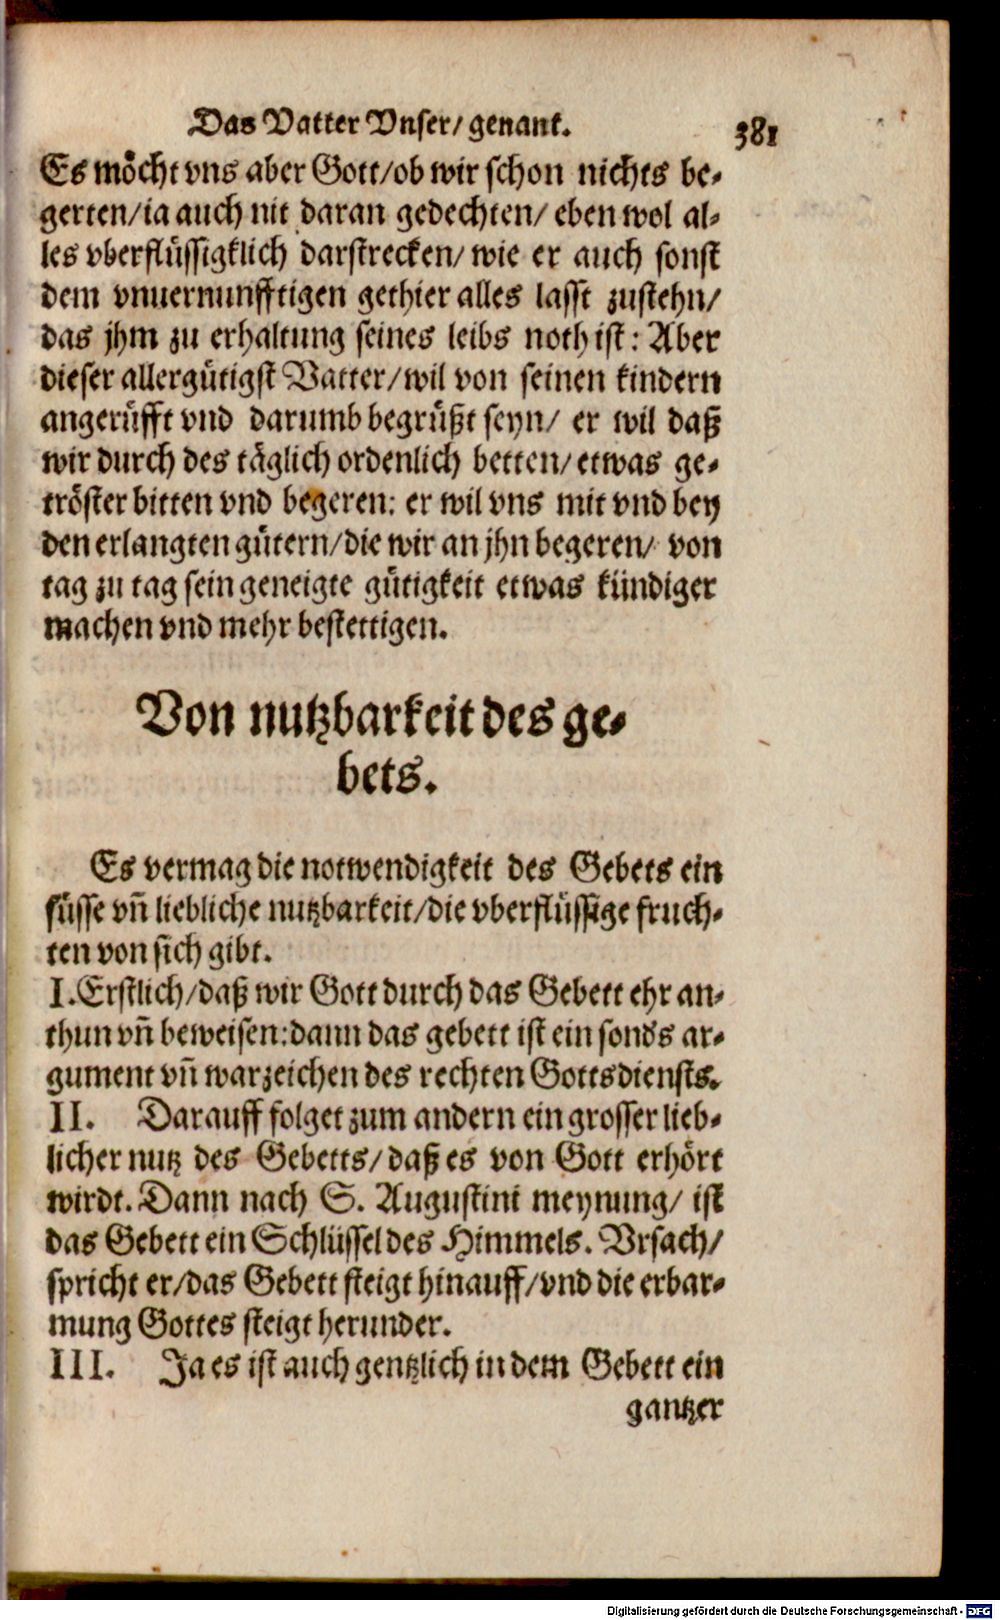 Das Vatter Vnser/ genant. 381
Es möcht vns aber Gott/ob wir schon nichts be-
gerten/ia auch nit daran gedechten/ eben wol al-
les vberflüssigklich darstrecken/ wie er auch sonst
dem vnuernunfftigen gethier alles lasst zustehn/
das jhm zu erhaltung seines leibs noth ist: Aber
dieser allergütigst Vatter/wil von seinen kindern
angerüfft vnd darumb begrüßt seyn/ er wil daß
wir durch des täglich ordenlich betten/etwas ge-
tröster bitten vnd begeren: er wil vns mit vnd bey
den erlangten gütern/die wir an jhn begeren/ von
tag zu tag sein geneigte gütigkeit etwas kündiger
machen vnd mehr bestettigen.
Von nutzbarkeit des ge-
bets.
Es vermag die notwendigkeit des Gebets ein
süsse vn̄ liebliche nutzbarkeit/die vberflüssige fruch-
ten von sich gibt.
I. Erstlich/daß wir Gott durch das Gebett ehr an-
thun vn̄ beweisen:dann das gebett ist ein sonds ar-
gument vn̄ warzeichen des rechten Gottsdiensts.
II. Darauff folget zum andern ein grosser lieb-
licher nutz des Gebetts/daß es von Gott erhört
wirdt. Dann nach S. Augustini meynung/ ist
das Gebett ein Schlüssel des Himmels. Vrsach/
spricht er/das Gebett steigt hinauff/vnd die erbar-
mung Gottes steigt herunder.
III. Ja es ist auch gentzlich in dem Gebett ein
gantzer
Digitalisierung gefördert durch die Deutsche Forschungsgemeinschaft - DFG